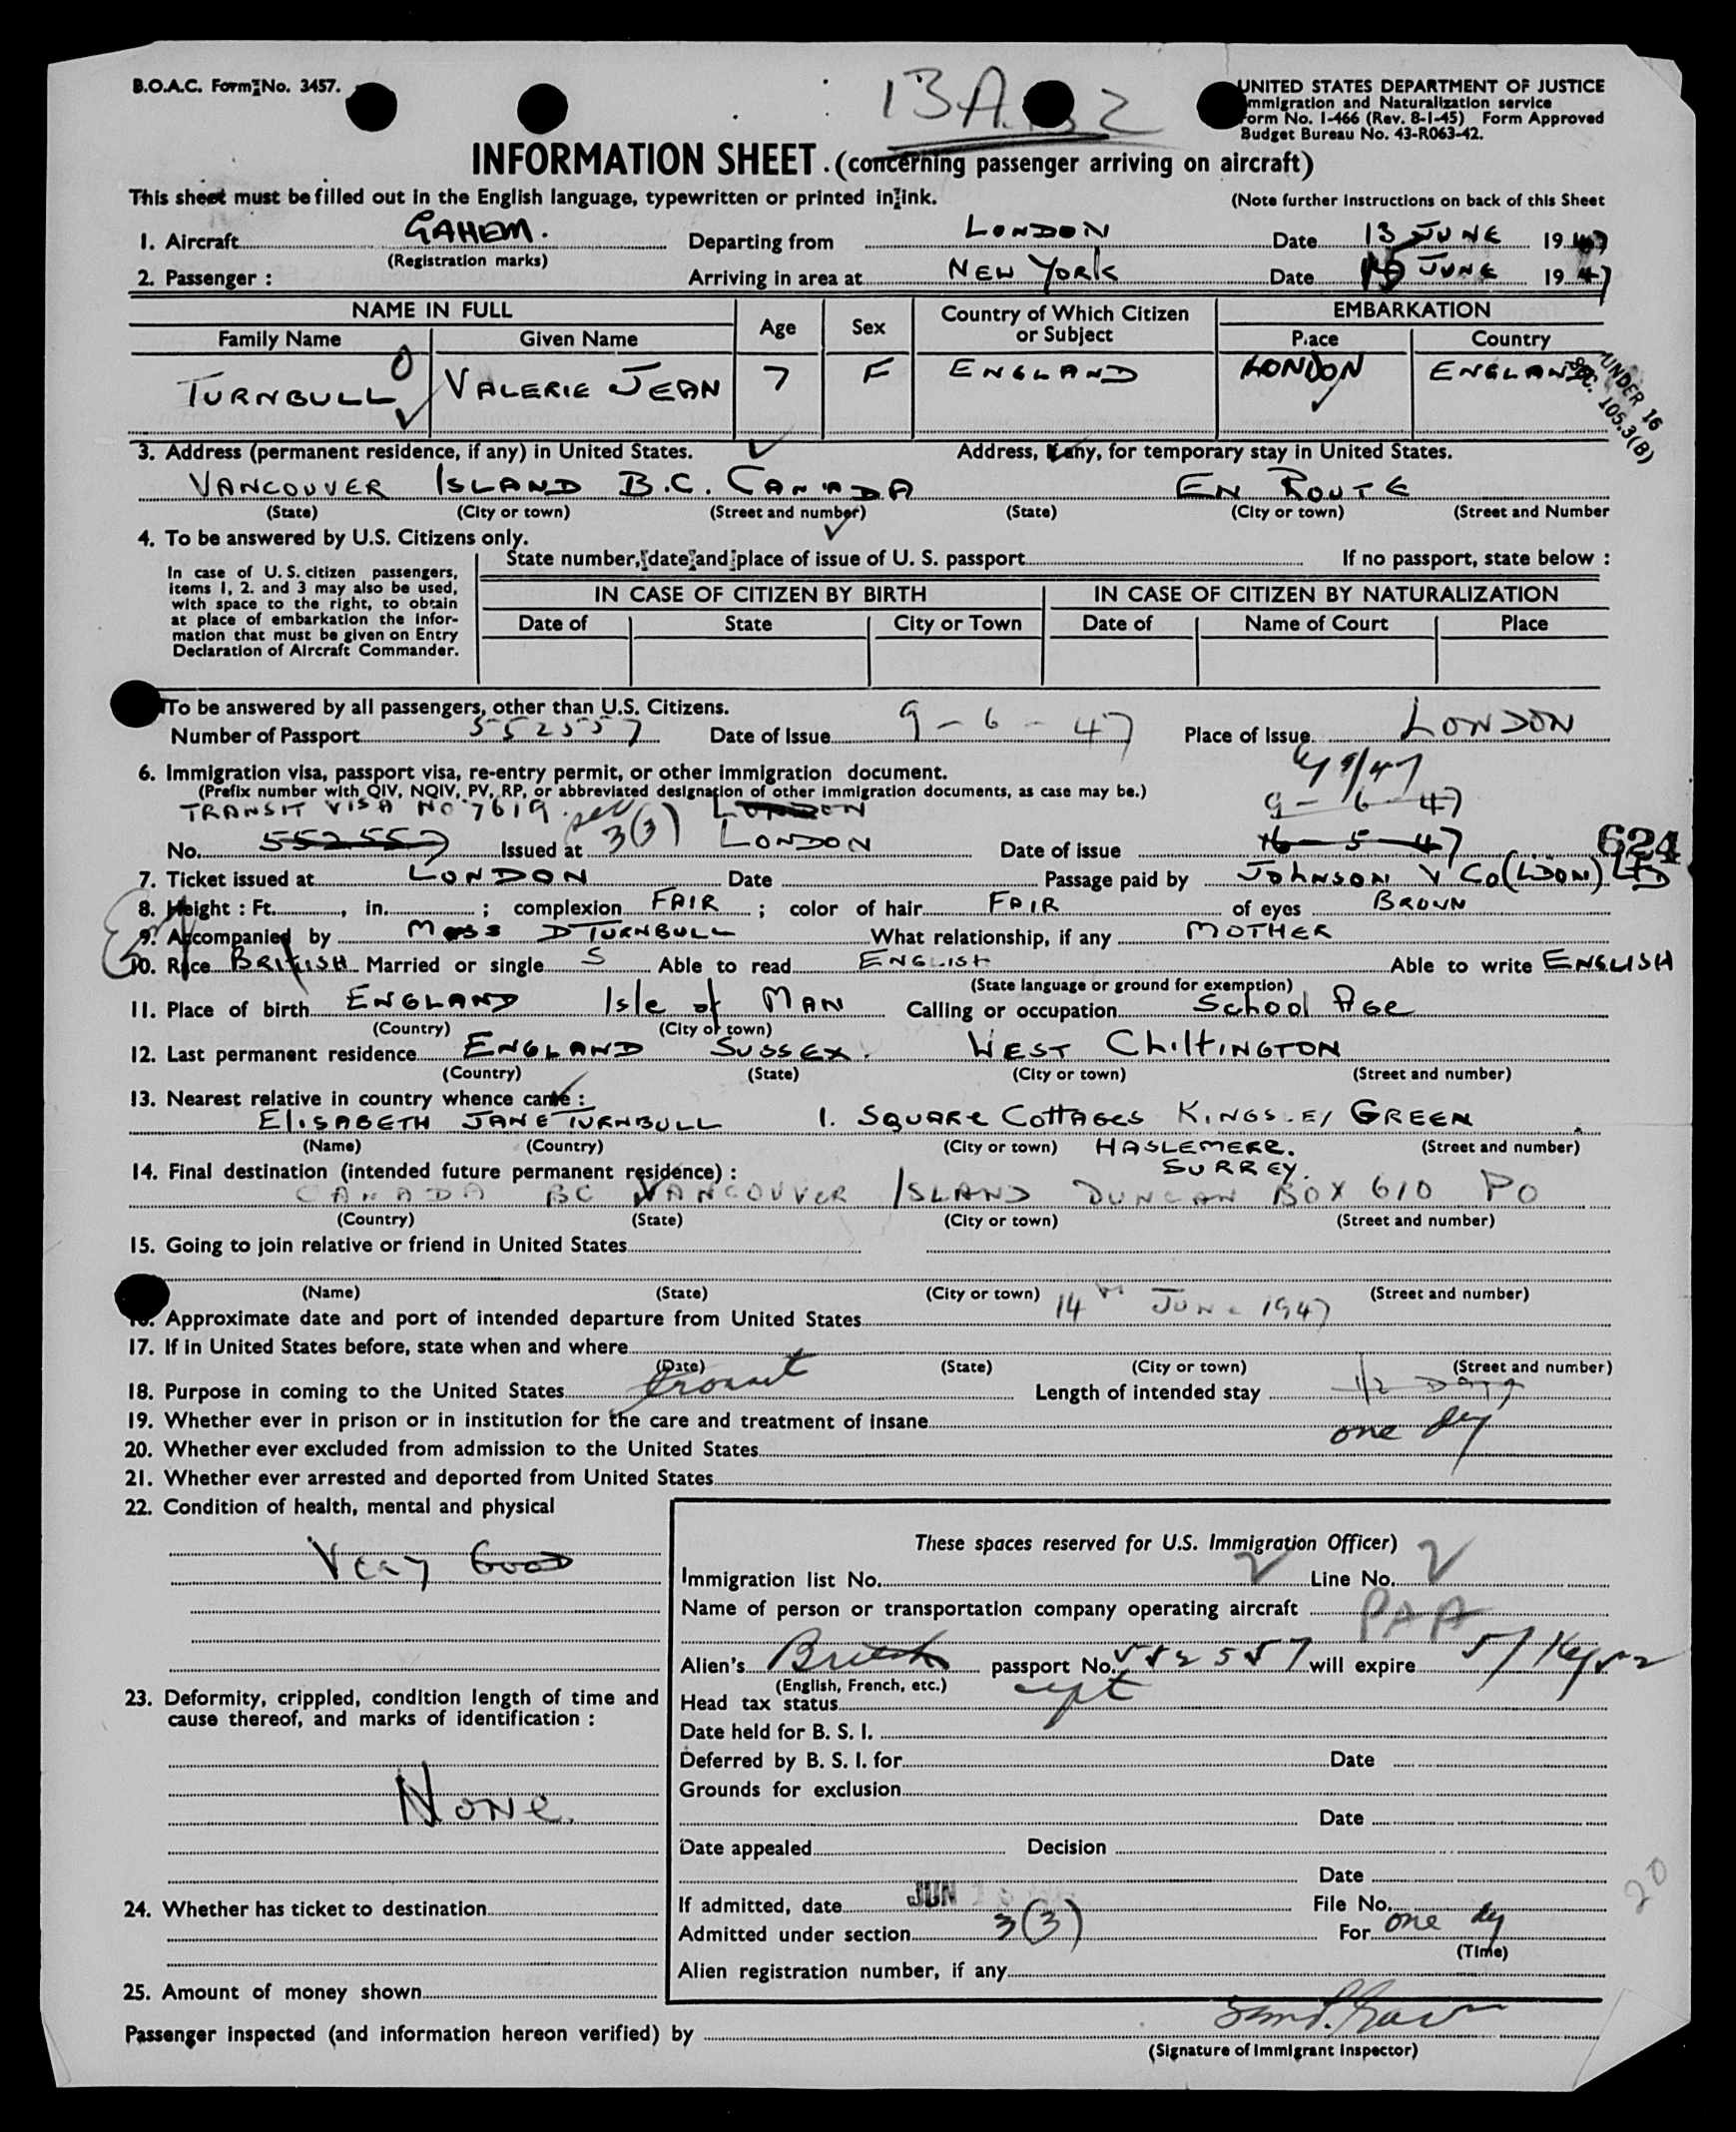 B.O.A.C. Form No. 3457.
13A
2
UNITED STATES DEPARTMENT OF JUSTICE
Immigration and Naturalization service
Form No. I-466 (Rev. 8-1-45) Form Approved
Budget Bureau No. 43-R063-42.
INFORMATION SHEET. (concerning passenger arriving on aircraft)
This sheet must be filled out in the English language, typewritten or printed in ink.
(Note further instructions on back of this Sheet
1. Aircraft GAHEM. Departing from LONDON Date 13 JUNE 1947
(Registration marks)
2. Passenger : Arriving in area at NEW YORK Date JUNE 1947
NAME IN FULL Age Sex Country of Which Citizen or Subject EMBARKATION
Family Name Given Name Place Country
TURNBULL VALERIE JEAN 7 F ENGLAND LONDON ENGLAND
UNDER 16
SEC. 105.3(B)
3. Address (permanent residence, if any) in United States. Address, if any, for temporary stay in United States.
VANCOUVER ISLAND B.C. CANADA EN ROUTE
(State) (City or town) (Street and number) (State) (City or town) (Street and Number
4. To be answered by U.S. Citizens only.
State number, date and place of issue of U. S. passport If no passport, state below :
In case of U. S. citizen passengers,
items 1, 2. and 3 may also be used,
with space to the right, to obtain
at place of embarkation the infor-
mation that must be given on Entry
Declaration of Aircraft Commander.
IN CASE OF CITIZEN BY BIRTH IN CASE OF CITIZEN BY NATURALIZATION
Date of State City or Town Date of Name of Court Place
To be answered by all passengers, other than U.S. Citizens.
Number of Passport 552557 Date of Issue 9-6-47 Place of Issue LONDON
6. Immigration visa, passport visa, re-entry permit, or other immigration document.
(Prefix number with QIV, NQIV, PV, RP, or abbreviated designation of other immigration documents, as case may be.)
TRANSIT VISA NO 7619 sec LONDON 9-6-47
No. 552557 Issued at 3(3) LONDON Date of issue 16-5-47
624
7. Ticket issued at LONDON Date Passage paid by JOHNSON & CO (LDON) LTD
8. Height : Ft. , in. ; complexion FAIR ; color of hair FAIR of eyes BROWN
9. Accompanied by MRSS D TURNBULL What relationship, if any MOTHER
10. Race BRITISH Married or single S Able to read ENGLISH Able to write ENGLISH
(State language or ground for exemption)
11. Place of birth ENGLAND Isle of MAN Calling or occupation School Age
(Country) (City or town)
12. Last permanent residence ENGLAND SUSSEX. WEST ChiltINGTON
(Country) (State) (City or town) (Street and number)
13. Nearest relative in country whence came :
ELISABETH JANE TURNBULL 1. SQUARE COTTAGES KINGSLEY GREEN
(Name) (Country) (City or town) HASLEMERE. (Street and number)
SURREY.
14. Final destination (intended future permanent residence) :
CANADA BC VANCOUVER ISLAND DUNCAN BOX 610 PO
(Country) (State) (City or town) (Street and number)
15. Going to join relative or friend in United States
(Name) (State) (City or town) (Street and number)
16. Approximate date and port of intended departure from United States 14th JUNE 1947
17. If in United States before, state when and where
(Date) (State) (City or town) (Street and number)
18. Purpose in coming to the United States transit Length of intended stay 1/2 DAY
one day
19. Whether ever in prison or in institution for the care and treatment of insane
20. Whether ever excluded from admission to the United States
21. Whether ever arrested and deported from United States
22. Condition of health, mental and physical
Very Good
23. Deformity, crippled, condition length of time and
cause thereof, and marks of identification :
None.
24. Whether has ticket to destination
25. Amount of money shown
These spaces reserved for U.S. Immigration Officer)
Immigration list No. 2 Line No. 2
Name of person or transportation company operating aircraft PAA
Alien's British passport No. 552557 will expire
(English, French, etc.)
Head tax status
Date held for B. S. I.
Deferred by B. S. I. for Date
Grounds for exclusion
Date
Date appealed Decision
Date
If admitted, date JUN File No.
Admitted under section 3(3) For one day
(Time)
Alien registration number, if any
20
Passenger inspected (and information hereon verified) by
(Signature of Immigrant Inspector)